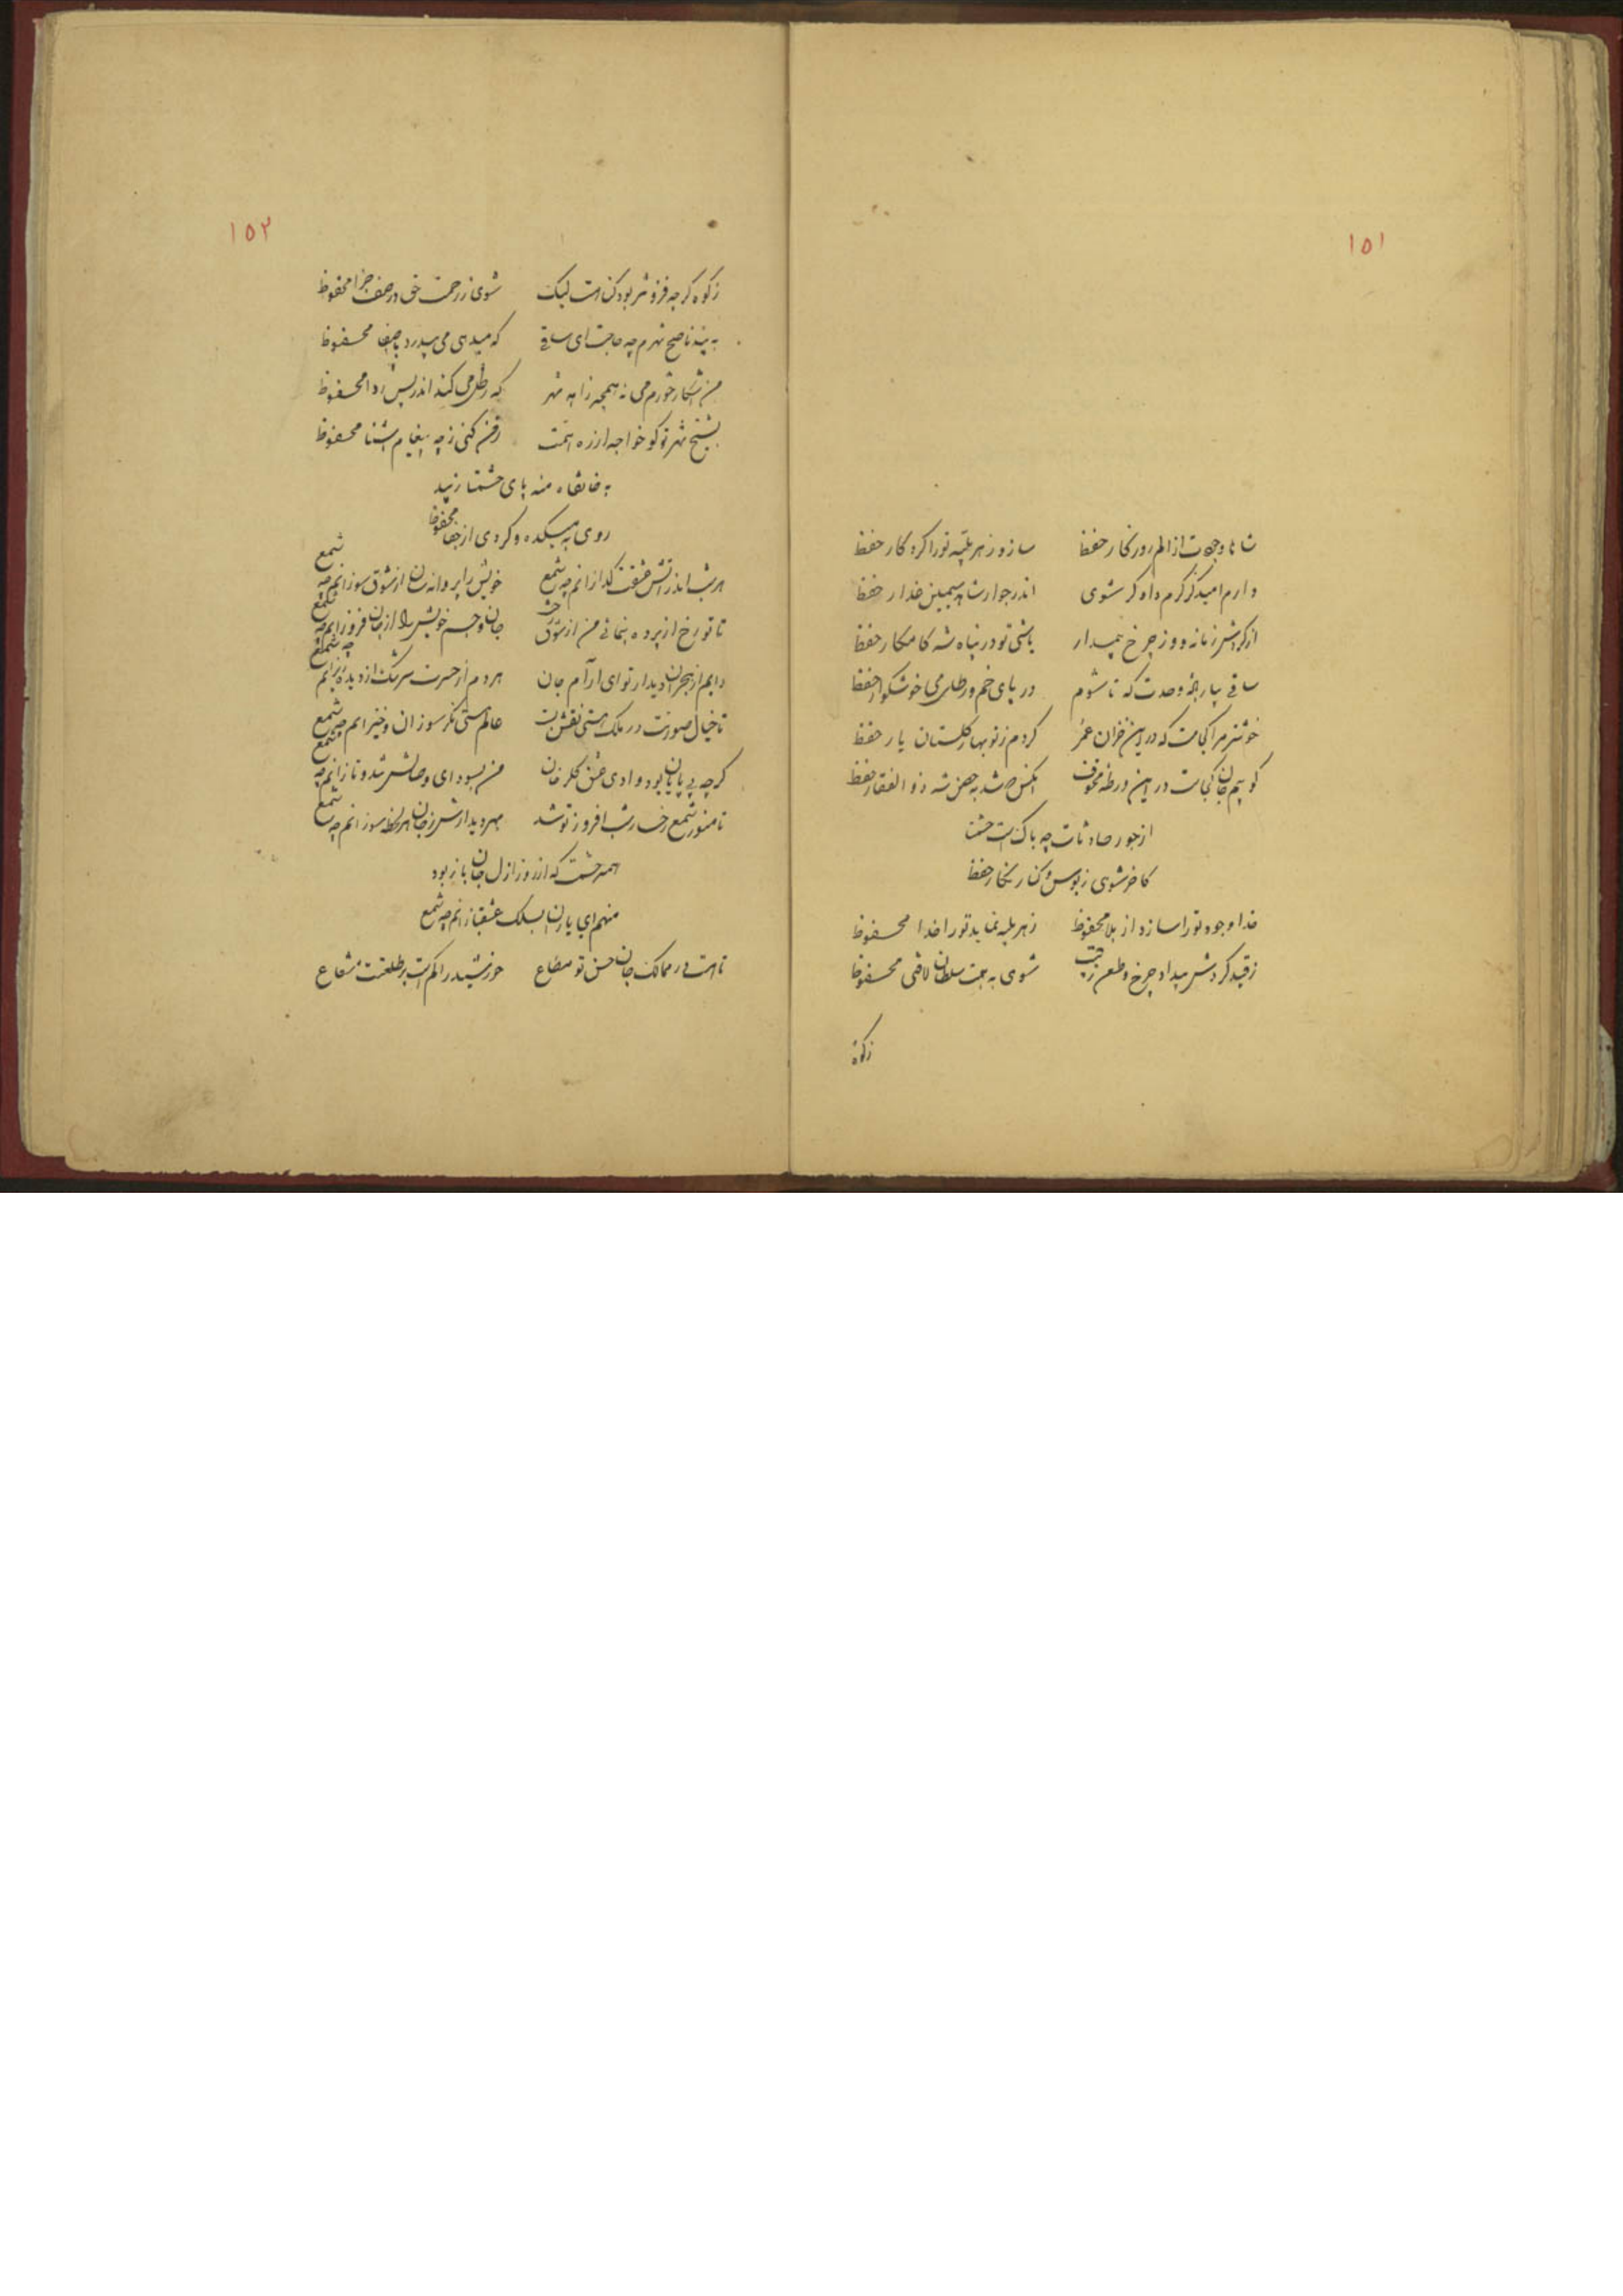 ۱۵۱
شاها وجودت از الم روزگار حفظ سازد ز هر بلیه تو را کردگار حفظ
دارم امید کز کرم دادگر شوی اندر جوار شاه سیمین عذار حفظ
از گردش زمانه و وز چرخ بیمدار باشی تو در پناه شه کامکار حفظ
ساقی بیار باده وحدت که تا شوم در پای خم ورطل می خوشگوار حفظ
خوشتر مرا کجاست که در این خزان عمر کردم ز نوبهار گلستان یار حفظ
کو بیم جان کجاست در این ورطه مخوف آنکس که شد به حصن شه ذوالفقار حفظ
از جور حادثات چه باک است حشمتا
کاخر شوی ز بوس و کنار نگار حفظ
خدا وجود تو را سازد از بلا محفوظ ز هر بلیه نماید تو را خدا محفوظ
ز قید گردش بیداد چرخ و طعن رقیب شوی به همت سلطان لافتی محفوظ
زکوة
۱۵۲
زکوه گرچه فزونتر بود گناهت لیک شوی ز رحمت حق در صف جزا محفوظ
به پند ناصح شهرم چه حاجت ای ساقی که میدهی می بیدرد باصفا محفوظ
من آشکار خورم می نه همچه زاهد شهر که رطل می کند اندر پس ردا محفوظ
بشیخ شهر تو گو خواجه از ره همت رقص کنی ز چه پیغام آشنا محفوظ
به خانقاه منه پای حشمتا زنهار
روی به میکده و گردی از جفا محفوظ
هر شب اندر آتش عشقت گدازانم چه شمع خویش را پروانه سان از شوق سوزانم چه شمع
تا تو رخ از پرده بنمائی من از شوق رخت جان و جسم خویش را از جان فروزانم چه شمع
دایم از هجران دیدار تو ای آرام جان هر دم از حسرت سرشک از دیده ریزانم چه شمع
تا خیال صورتت در ملک هستی نقش بست عالم هستی نگر سوزان و خیزانم چه شمع
گرچه بی پایان بود وادی عشق گلرخان من بسودای وصالش شد و تازانم چه شمع
تا منور شمع رخسار شب افروز تو شد بهر دیدارش ز جان هر لحظه سوزانم چه شمع
همچه حشمت که از روز ازل جانباز بود
منهم ای یاران بسلک عشقبازانم چه شمع
تا هست در ممالک جان حسن تو مطاع خورشید را کم است بر طلعتت شعاع